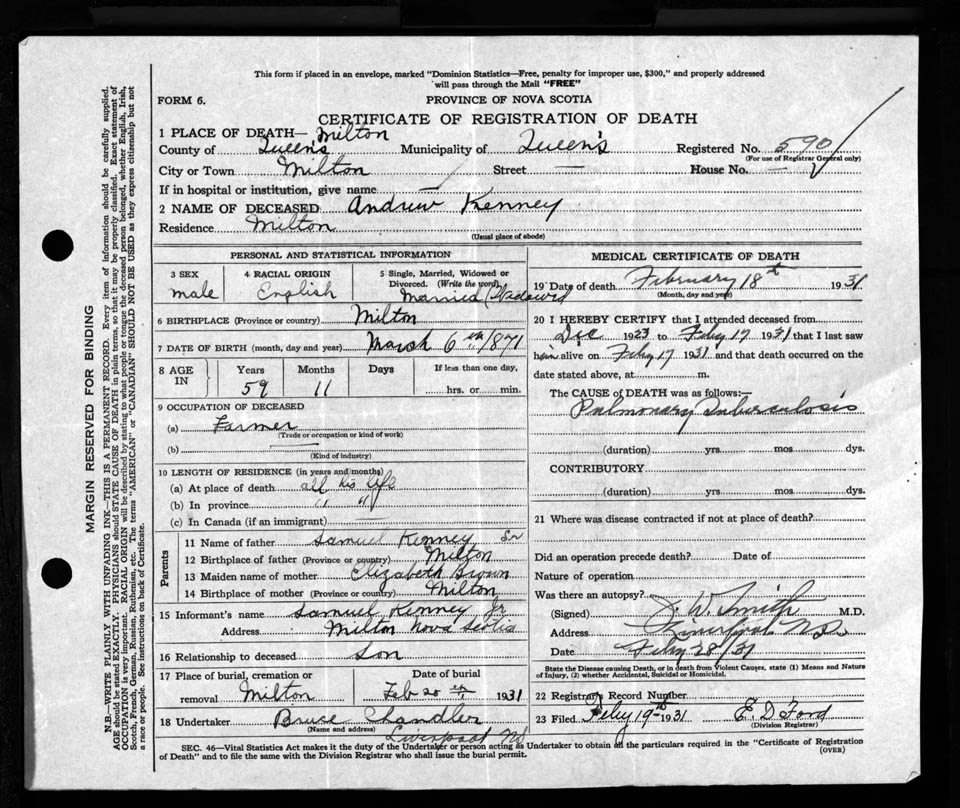 This form if placed in an envelope, marked "Dominion Statistics—Free, penalty for improper use, $300," and properly addressed
will pass through the Mail "FREE"
FORM 6.
PROVINCE OF NOVA SCOTIA
CERTIFICATE OF REGISTRATION OF DEATH
1 PLACE OF DEATH— Milton
County of Queen's Municipality of Queen's Registered No. 590
(For use of Registrar General only)
City or Town Milton Street — House No. —
If in hospital or institution, give name —
2 NAME OF DECEASED Andrew Kenney
Residence Milton
(Usual place of abode)
PERSONAL AND STATISTICAL INFORMATION
3 SEX 4 RACIAL ORIGIN 5 Single, Married, Widowed or
Divorced. (Write the word)
male English Married (Widowed
6 BIRTHPLACE (Province or country) Milton
7 DATE OF BIRTH (month, day and year) March 6th 1871
8 AGE IN Years Months Days If less than one day,
59 11 hrs. or min.
9 OCCUPATION OF DECEASED
(a) Farmer
(Trade or occupation or kind of work)
(b)
(Kind of industry)
10 LENGTH OF RESIDENCE (in years and months)
(a) At place of death all his life
(b) In province " "
(c) In Canada (if an immigrant) —
Parents
11 Name of father Samuel Kenney Sr
12 Birthplace of father (Province or country) Milton
13 Maiden name of mother Elizabeth Brown
14 Birthplace of mother (Province or country) Milton
15 Informant's name Samuel Kenney Jr
Address Milton Nova Scotia
16 Relationship to deceased Son
17 Place of burial, cremation or Date of burial
removal Milton Feb 20th 1931
18 Undertaker Bruce Chandler
(Name and address)
Liverpool NS
MEDICAL CERTIFICATE OF DEATH
19 Date of death February 18th 1931
(Month, day and year)
20 I HEREBY CERTIFY that I attended deceased from
Dec 1923 to Feby 17 1931 that I last saw
him alive on Feby 17 1931 and that death occurred on the
date stated above, at m.
The CAUSE OF DEATH was as follows:—
Pulmonary Tuberculosis
(duration) yrs mos. dys.
CONTRIBUTORY
(duration) yrs. mos. dys.
21 Where was disease contracted if not at place of death?
Did an operation precede death? Date of
Nature of operation
Was there an autopsy?
(Signed) J. W. Smith M.D.
Address Liverpool N.S.
Date Feby 28/31
State the Disease causing Death, or in death from Violent Causes, state (1) Means and Nature
of Injury, (2) whether Accidental, Suicidal or Homicidal.
22 Registrars Record Number
23 Filed Feby 19th 1931 E. D Ford
(Division Registrar)
SEC. 46—Vital Statistics Act makes it the duty of the Undertaker or person acting as Undertaker to obtain all the particulars required in the "Certificate of Registration
of Death" and to file the same with the Division Registrar who shall issue the burial permit.
(OVER)
MARGIN RESERVED FOR BINDING
N.B.—WRITE PLAINLY WITH UNFADING INK—THIS IS A PERMANENT RECORD. Every item of information should be carefully supplied.
AGE should be stated EXACTLY. PHYSICIANS should STATE CAUSE OF DEATH in plain terms, so that it may be properly classified. Exact statement of
OCCUPATION is very important. RACIAL ORIGIN will be described by stating to what people or tongue the deceased person belonged, whether English, Irish,
Scotch, French, German, Russian, Ruthenian, etc. The terms "AMERICAN" or "CANADIAN" SHOULD NOT BE USED as they express citizenship but not
a race or people. See instructions on back of Certificate.